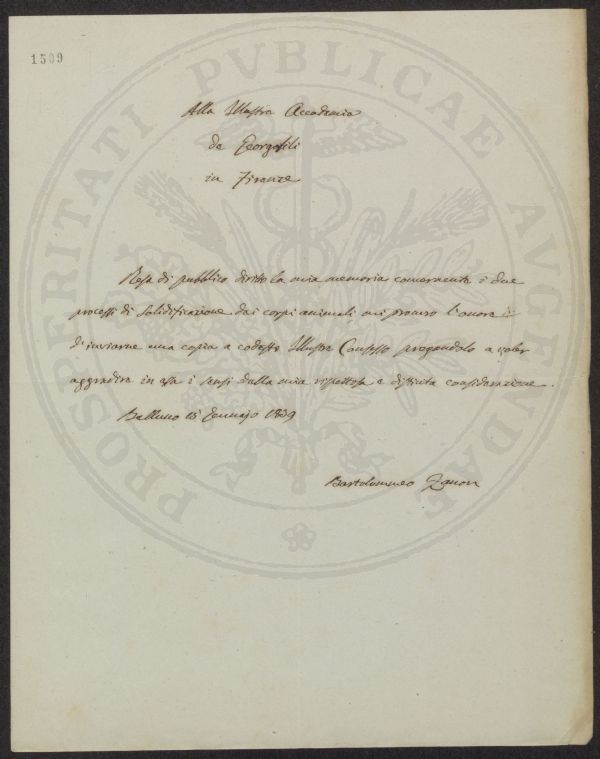 1509
PROSPERITATI PVBLICAE AVGENDAE
Alla Illustre Accademia
de Georgofili
in Firenze
Resa di pubblico diritto la mia memoria concernente i due
processi di solidificazione dei corpi animali mi procuro l'onore
d'inviarne una copia a codesto Illustre Consesso pregandolo a voler
aggradire in essa i sensi della mia rispettosa e distinta considerazione.
Belluno 15 Gennajo 1839
Bartolommeo Zanon